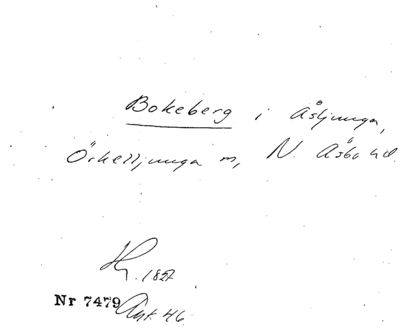 Bokeberg i Åsljunga,
Örkelljunga m, N. Åsbo hd.
Hy. 1827
Nr 7479 Ant. 46